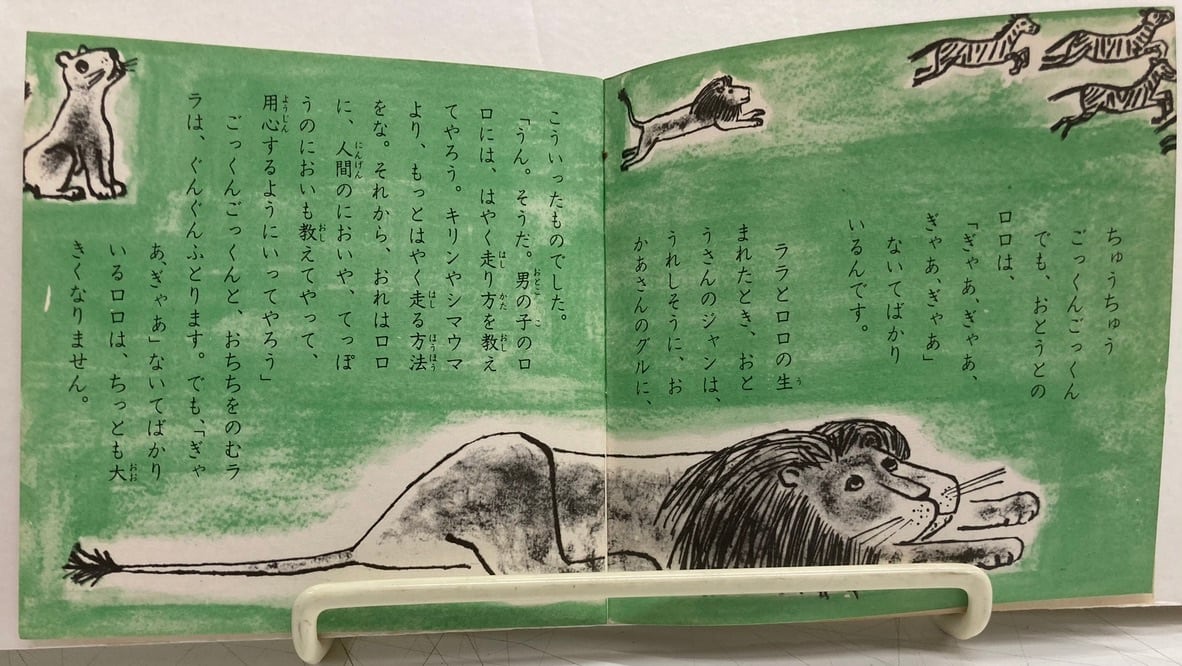 ちゅうちゅう
ごっくんごっくん
でも、おとうとの
ロロは、
「ぎゃあ、ぎゃあ、
ぎゃあ、ぎゃあ」
ないてばかり
いるんです。
ララとロロの生
まれたとき、おと
うさんのジャンは、
うれしそうに、お
かあさんのグルに、
こういったものでした。
「うん。そうだ。男の子のロ
ロには、はやく走り方を教え
てやろう。キリンやシマウマ
より、もっとはやく走る方法
をな。それから、おれはロロ
に、人間のにおいや、てっぽ
うのにおいも教えてやって、
用心するようにいってやろう」
ごっくんごっくんと、おちちをのむラ
ラは、ぐんぐんふとります。でも、「ぎゃ
あ、ぎゃあ」ないてばかり
いるロロは、ちっとも大
きくなりません。